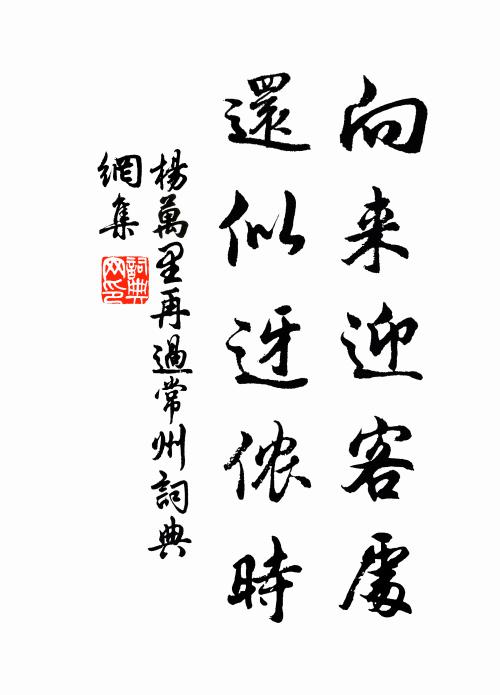 向来迎客處
還似迓侬時
楊萬里再過常州詞典
網集
詞典網印